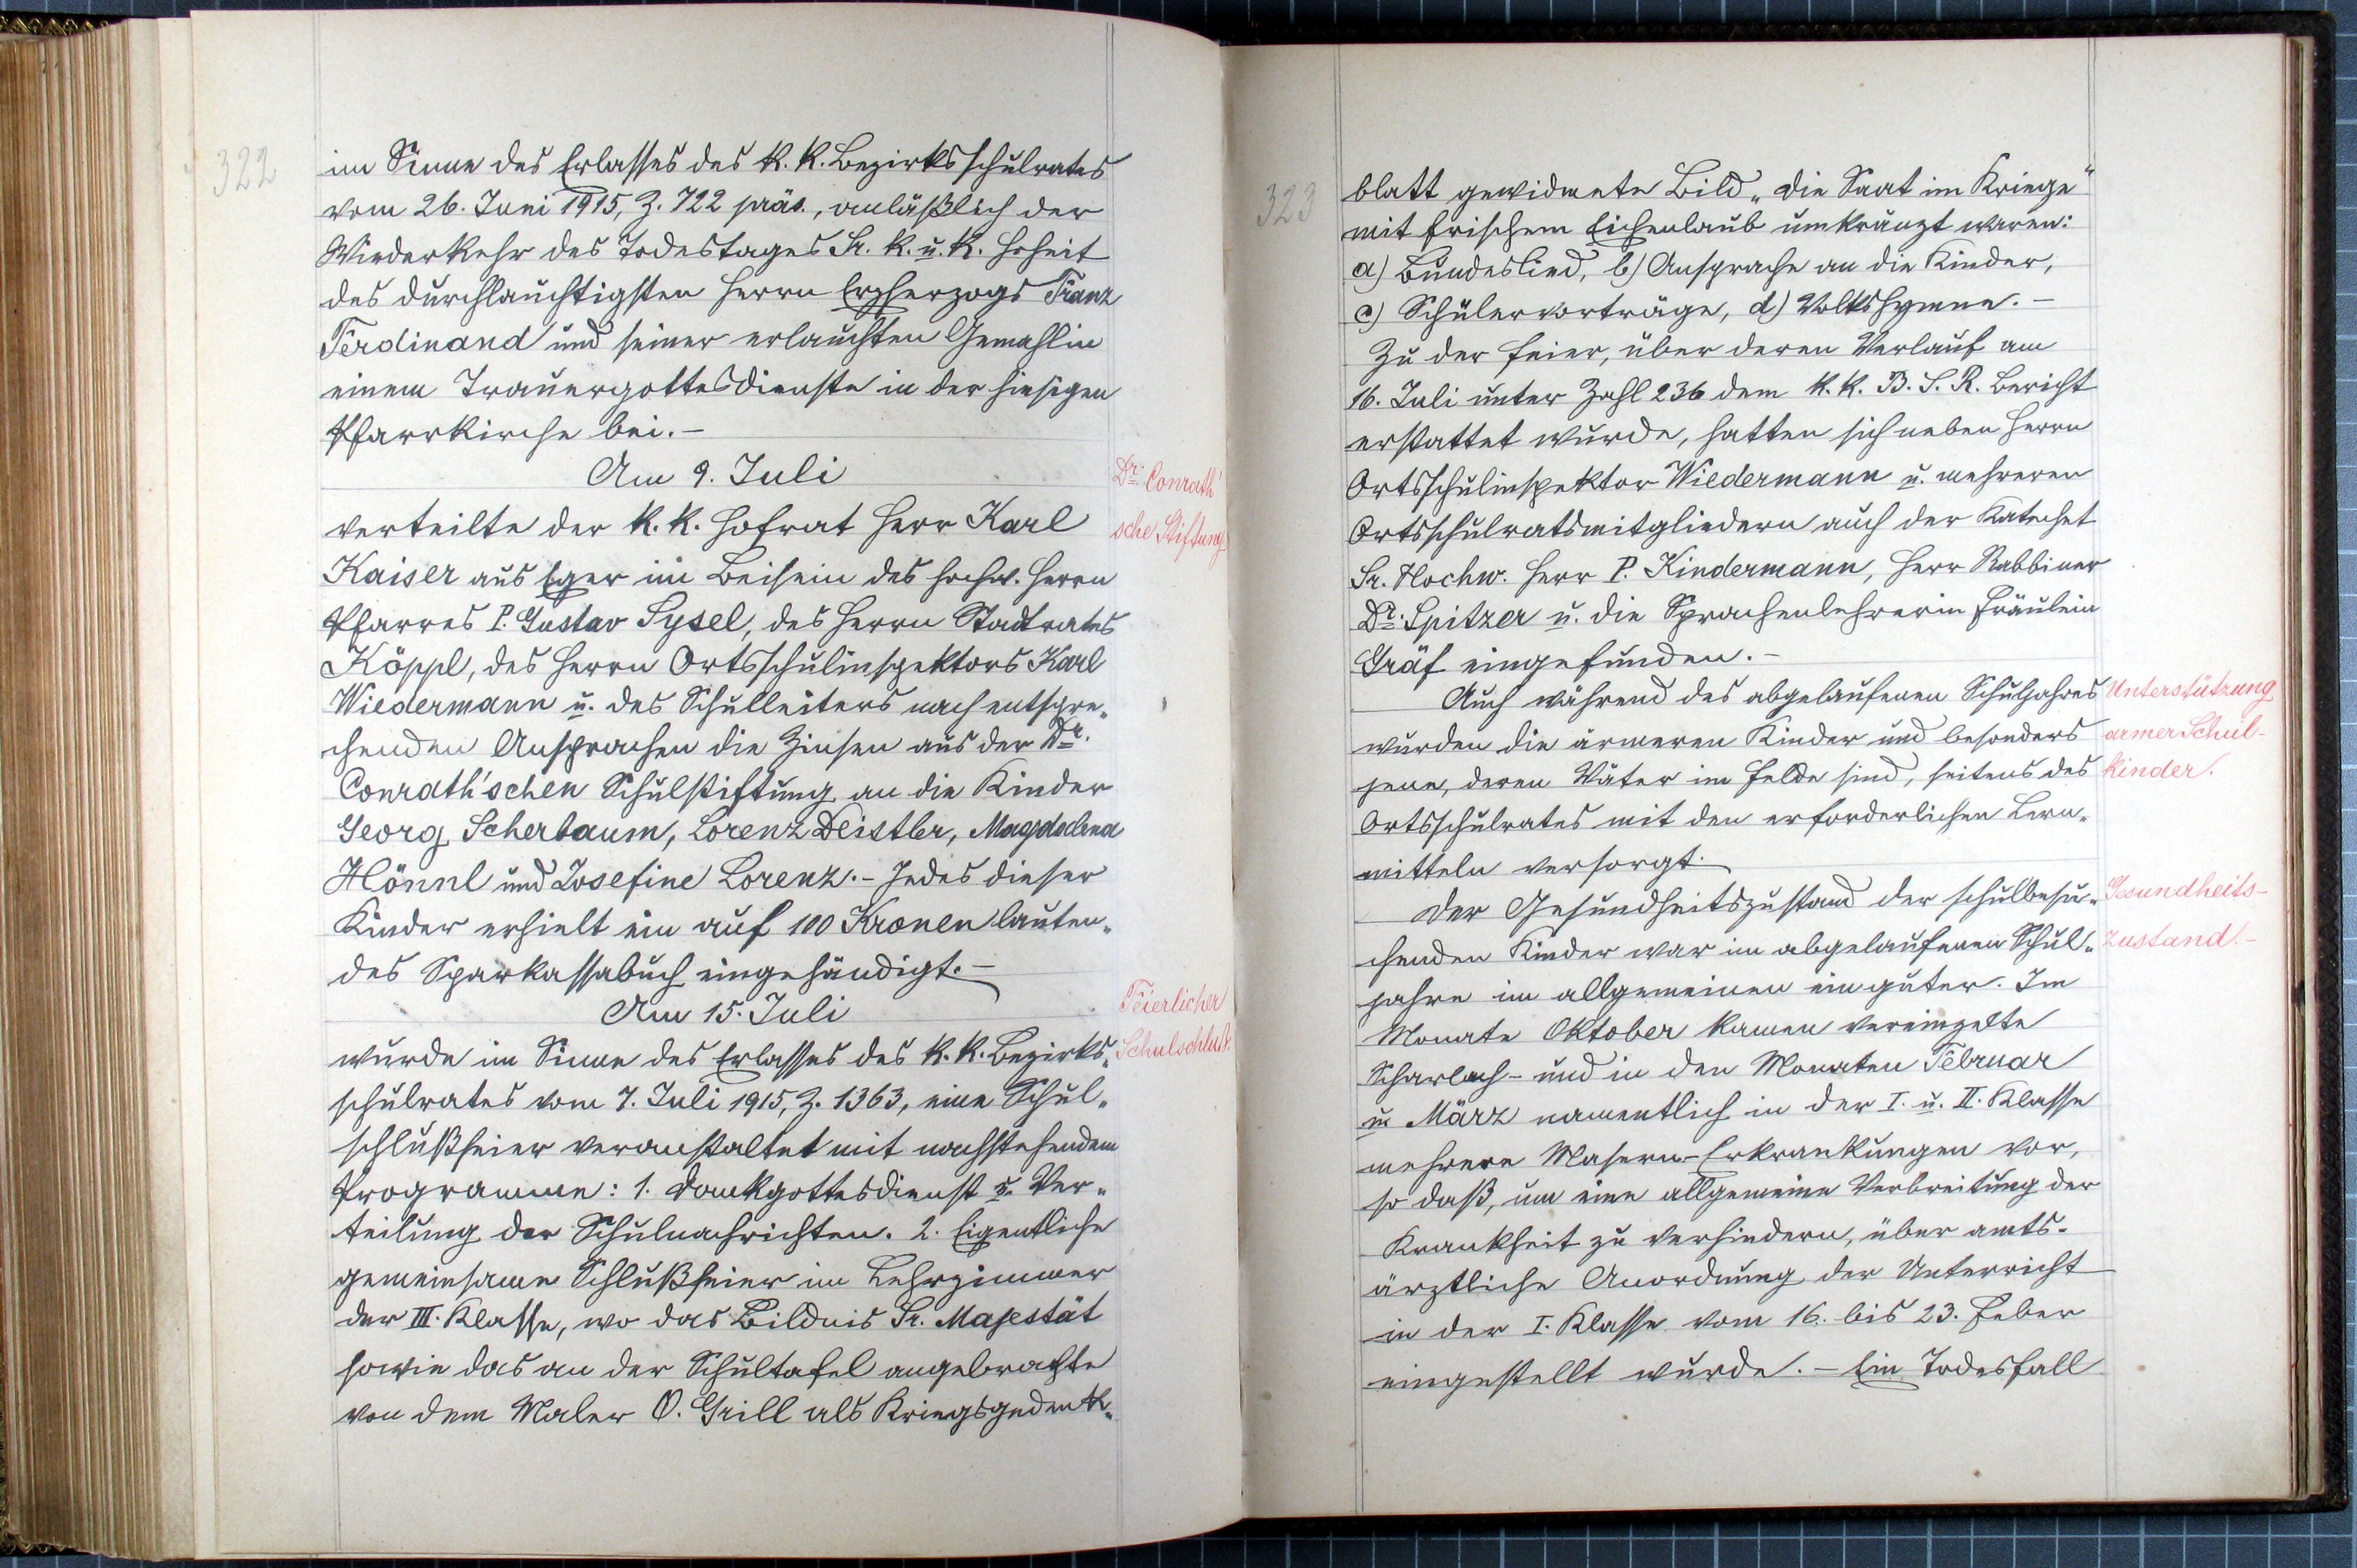 322
im Sinne des Erlasses des k. k. Bezirksschulrates
vom 26. Juni 1915, Z. 722 präs., anläßlich der
Wiederkehr des Todestages Sr. k. u. k. Hoheit
des durchlauchtigsten Herrn Erzherzogs Franz
Ferdinand und seiner erlauchten Gemahlin
einem Trauergottesdienste in der hiesigen
Pfarrkirche bei.-
Am 9. Juli
Dr. Conrath'
sche Stiftung
verteilte der k. k. Hofrat Herr Karl
Kaiser aus Eger im Beisein des hochw. Herrn
Pfarrers P. Gustav Sysel, des Herrn Stadtrates
Köppl, des Herrn Ortsschulinspektors Karl
Wiedermann u. des Schulleiters nach entspre„
chenden Ansprachen die Zinsen aus der Dr.
Conrath'schen Schulstiftung an die Kinder
Georg Scherbaum, Lorenz Deistler, Magdalena
Hönnl und Josefine Lorenz.- Jedes dieser
Kinder erhielt ein auf 100 Kronen lauten„
des Sparkassabuch eingehändigt.-
Am 15. Juli
Feierlicher
Schulschluß.
wurde im Sinne des Erlasses des k. k. Bezirks„
schulrates vom 7. Juli 1915, Z. 1363, eine Schul„
schlußfeier veranstaltet mit nachstehendem
Programme: 1. Dankgottesdienst u. Ver„
teilung der Schulnachrichten. 2. Eigentliche
gemeinsame Schlußfeier im Lehrzimmer
der III. Klasse, wo das Bildnis Sr. Majestät
sowie das an der Schultafel angebrachte
von dem Maler O. Grill als Kriegsgedenk„
323
blatt gewidmete Bild „Die Saat im Kriege“
mit frischem Eichenlaub umkränzt waren:
a) Bundeslied, b) Ansprache an die Kinder,
c) Schülervorträge, d) Volkshymne.-
Zu der Feier, über deren Verlauf am
16. Juli unter Zahl 236 dem k. k. B. S. R. Bericht
erstattet wurde, hatten sich neben Herrn
Ortsschulinspektor Wiedermann u. mehreren
Ortsschulratsmitgliedern auch der Katechet
Sr. Hochw. Herr P. Kindermann, Herr Rabbiner
Dr. Spitzer u. die Sprachenlehrerin Fräulein
Gräf eingefunden.-
Unterstützung
armer Schul-
kinder.
Auch während des abgelaufenen Schuljahres
wurden die ärmeren Kinder und besonders
jene, deren Väter im Felde sind, seitens des
Ortsschulrates mit den erforderlichen Lern„
mitteln versorgt.
Gesundheits-
zustand.-
Der Gesundheitszustand der schulbesu„
chenden Kinder war im abgelaufenen Schul„
jahre im allgemeinen ein guter. Im
Monate Oktober kamen vereinzelte
Scharlach- und in den Monaten Februar
u. März namentlich in der I. u. II. Klasse
mehrere Masern-Erkrankungen vor,
so daß, um eine allgemeine Verbreitung der
Krankheit zu verhindern, über amts-
ärztliche Anordnung der Unterricht
in der I. Klasse vom 16. bis 23. Feber
eingestellt wurde.- Ein Todesfall